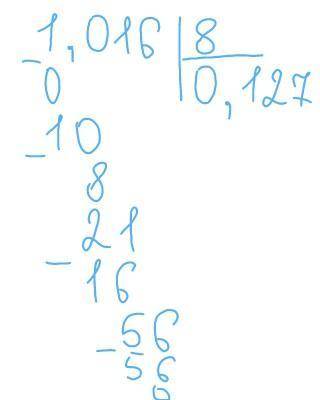 1,016 8
- 0 0,127
- 10
8
- 21
16
- 56
56
0